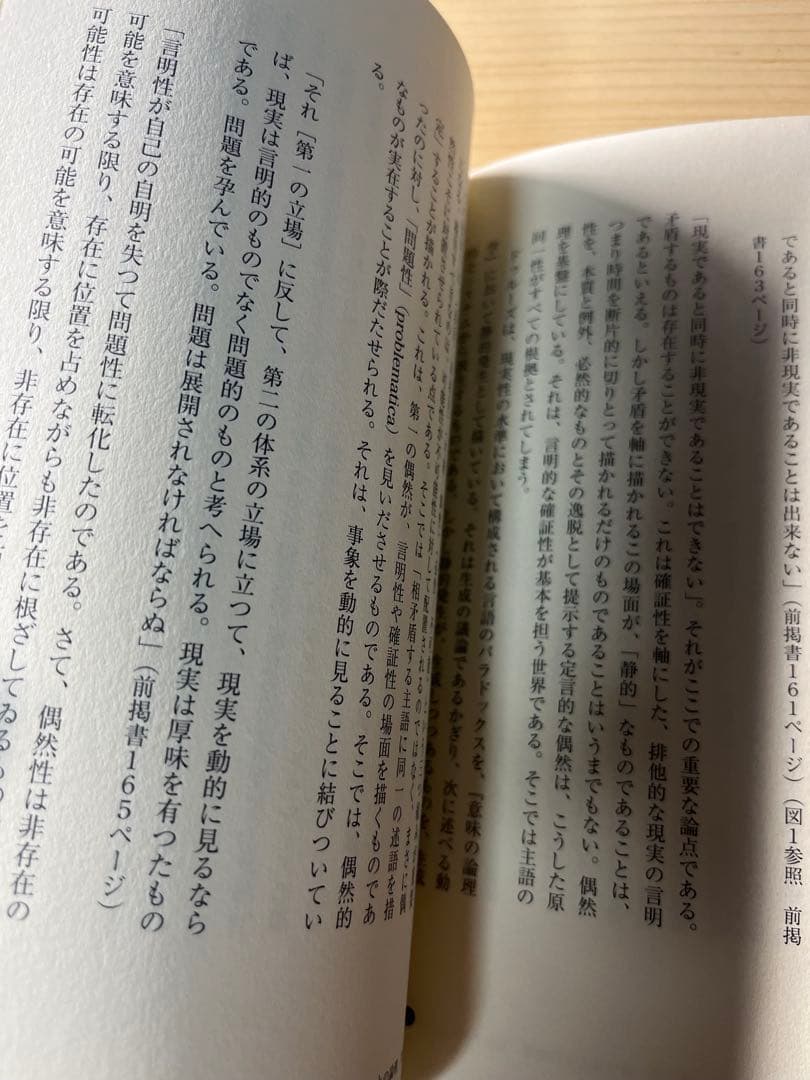 であると同時に非現実であることは出来ない」(前掲書161ページ)(図1参照 前掲
書163ページ)
「現実であると同時に非現実であることはできない」。それがここでの重要な論点である。
矛盾するものは存在することができない。これは確証性を軸にした、排他的な現実の言明
であるといえる。しかし矛盾を軸に描かれるこの場面が、「静的」なものであることは、
つまり時間を断片的に切りとって描かれるだけのものであることはいうまでもない。偶然
性を、本質と例外、必然的なものとその逸脱として提示する定言的な偶然は、こうした原
理を基盤にしている。それは、言明的な確証性が基本を担う世界である。そこでは主語の
同一性がすべての根拠とされてしまう。
ドゥルーズは、現実性の水準において構成される言語のパラドックスを、『意味の論理
学』において静的発生として描いている。それは生成の議論であるかぎり、次に述べる動
定）することが描かれる。これは、第一の偶然が、言明性や確証性の場面を描くものであ
ったのに対し、「問題性」(problematica)を見いださせるものである。そこでは、偶然的
なものが実在することが際だたせられる。それは、事象を動的に見ることに結びついてい
る。
「それ［第一の立場］に反して、第二の体系の立場に立つて、現実を動的に見るなら
ば、現実は言明的のものでなく問題的のものと考へられる。現実は厚味を有つたもの
である。問題を孕んでいる。問題は展開されなければならぬ」(前掲書165ページ)
「言明性が自己の自明を失つて問題性に転化したのである。さて、偶然性は非存在の
可能を意味する限り、存在に位置を占めながらも非存在に根ざしてゐるもの
可能性は存在の可能を意味する限り、非存在に位置を